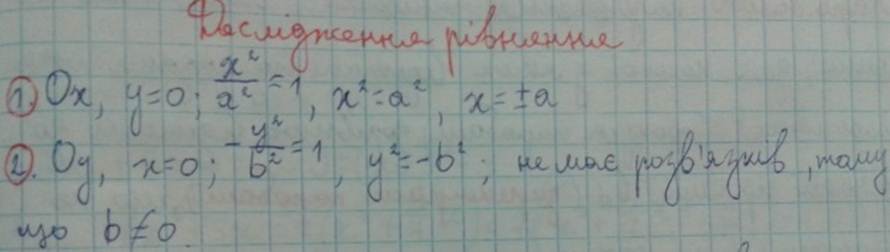 Дослідження рівняння
1) Ox, y=0; x²/a² = 1, x² = a², x = ±a
2). Oy, x=0; -y²/b² = 1, y² = -b²; немає розв'язків, тому
що b ≠ 0